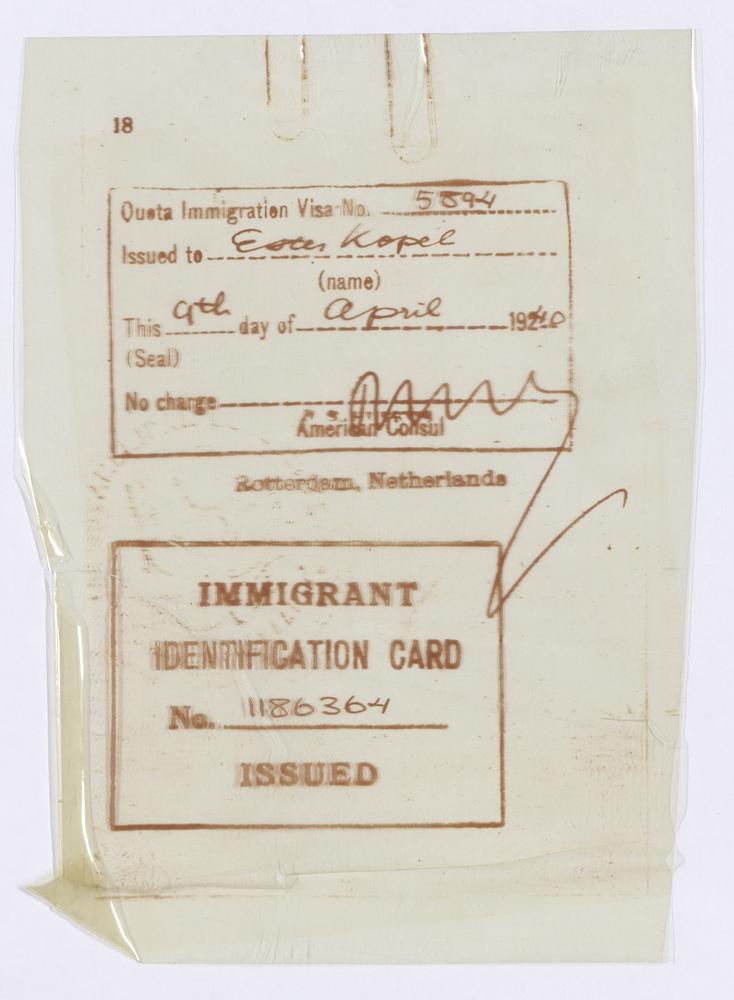 18
Quota Immigration Visa No. 5894
Issued to Ester Kopel
(name)
This 9th day of April 1940
(Seal)
No charge
American Consul
Rotterdam, Netherlands
IMMIGRANT
IDENTIFICATION CARD
No. 1186364
ISSUED